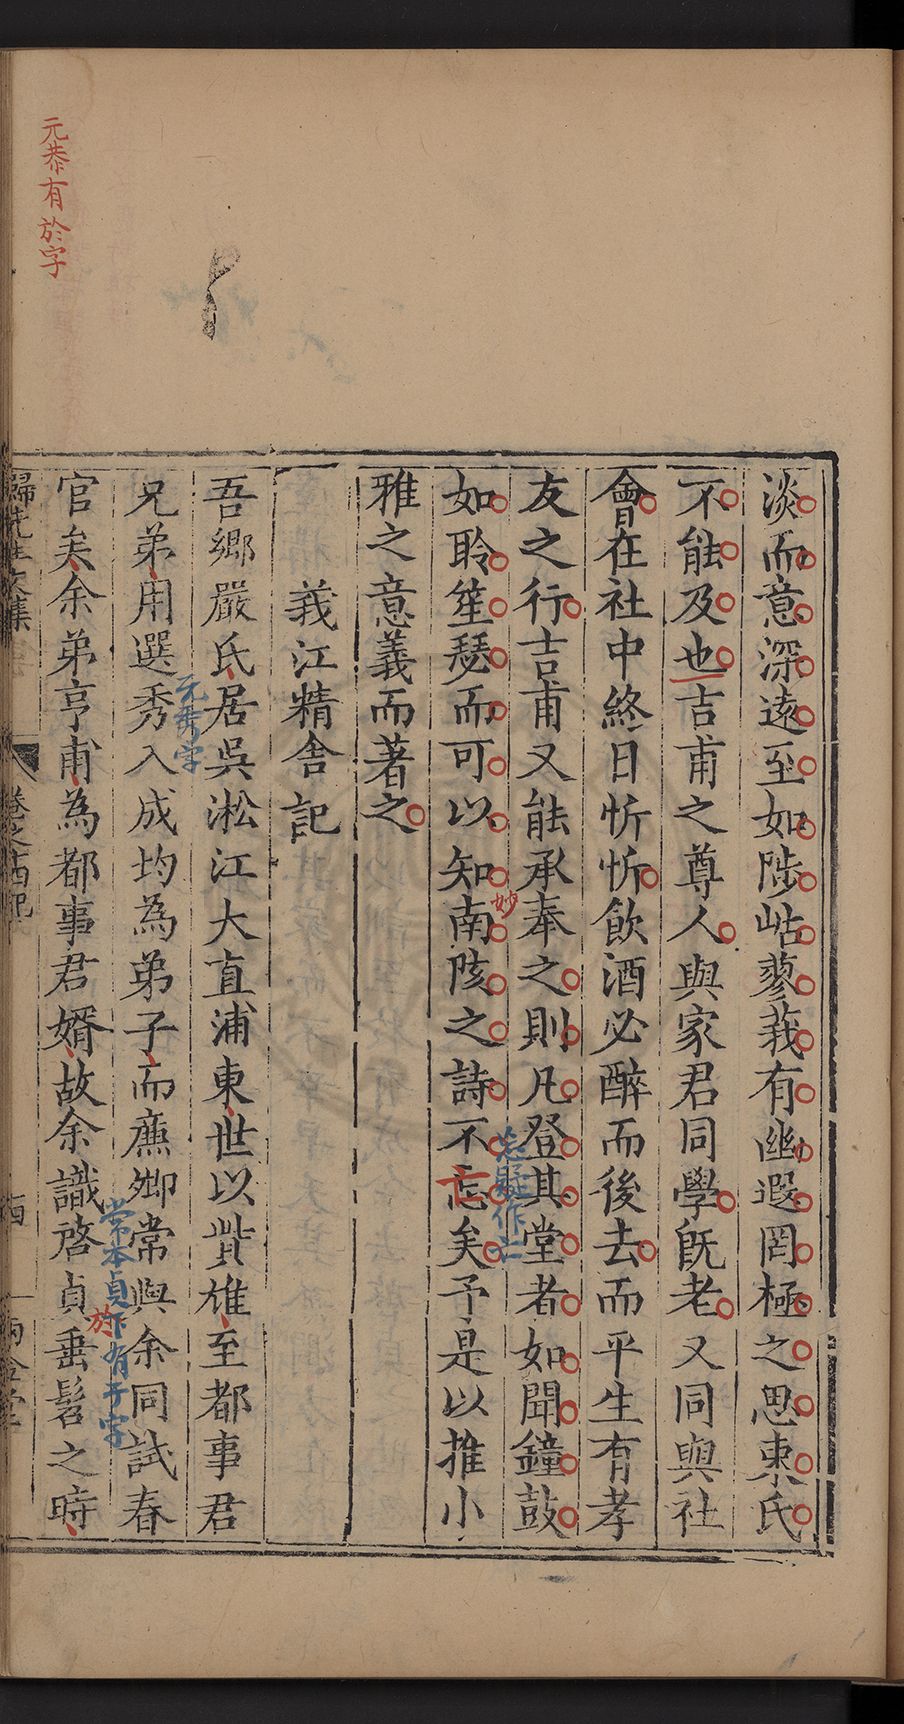 淡而意深遠至如陟岵蓼莪有幽遐罔極之思東氏
不能及也吉甫之尊人與家君同學旣老又同與社
會在社中終日忻忻飲酒必醉而後去而平生有孝
友之行吉甫又能承奉之則凡登其堂者如聞鐘鼓
如聆笙瑟而可以知南陔之詩不忘矣予是以推小
妙
忘疑作亡
雅之意義而著之
義江精舍記
吾鄉嚴氏居吳淞江大直浦東世以貲雄至都事君
兄弟用選秀入成均為弟子而廌卿常與余同試春
官矣余弟亨甫為都事君婿故余識啓貞垂髫之時
常本貞下有于字
於
元恭有於字
歸先生文集
卷之